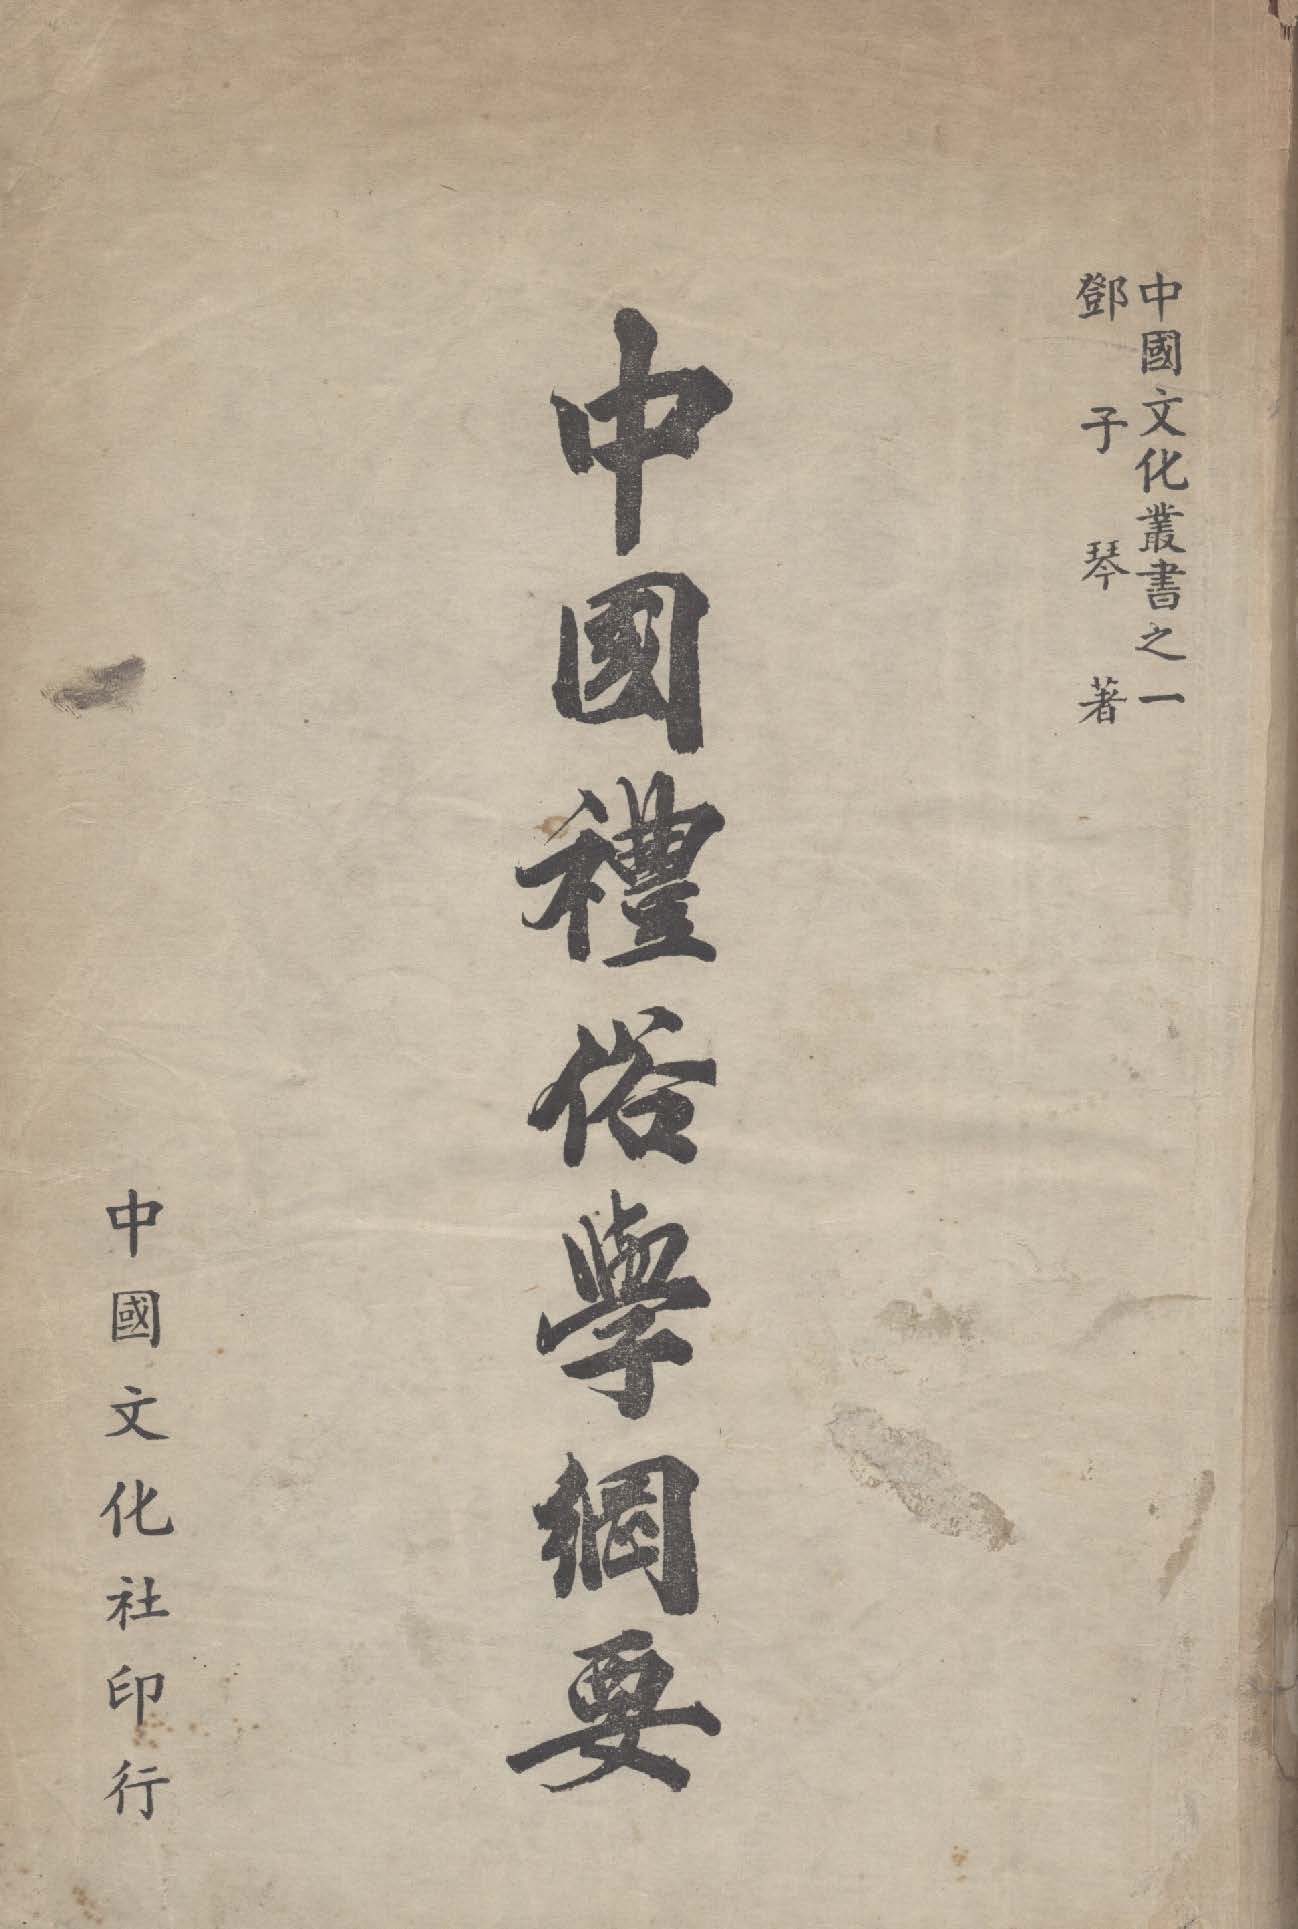 中國文化叢書之一
鄧子琴著
中國禮俗學綱要
中國文化社印行